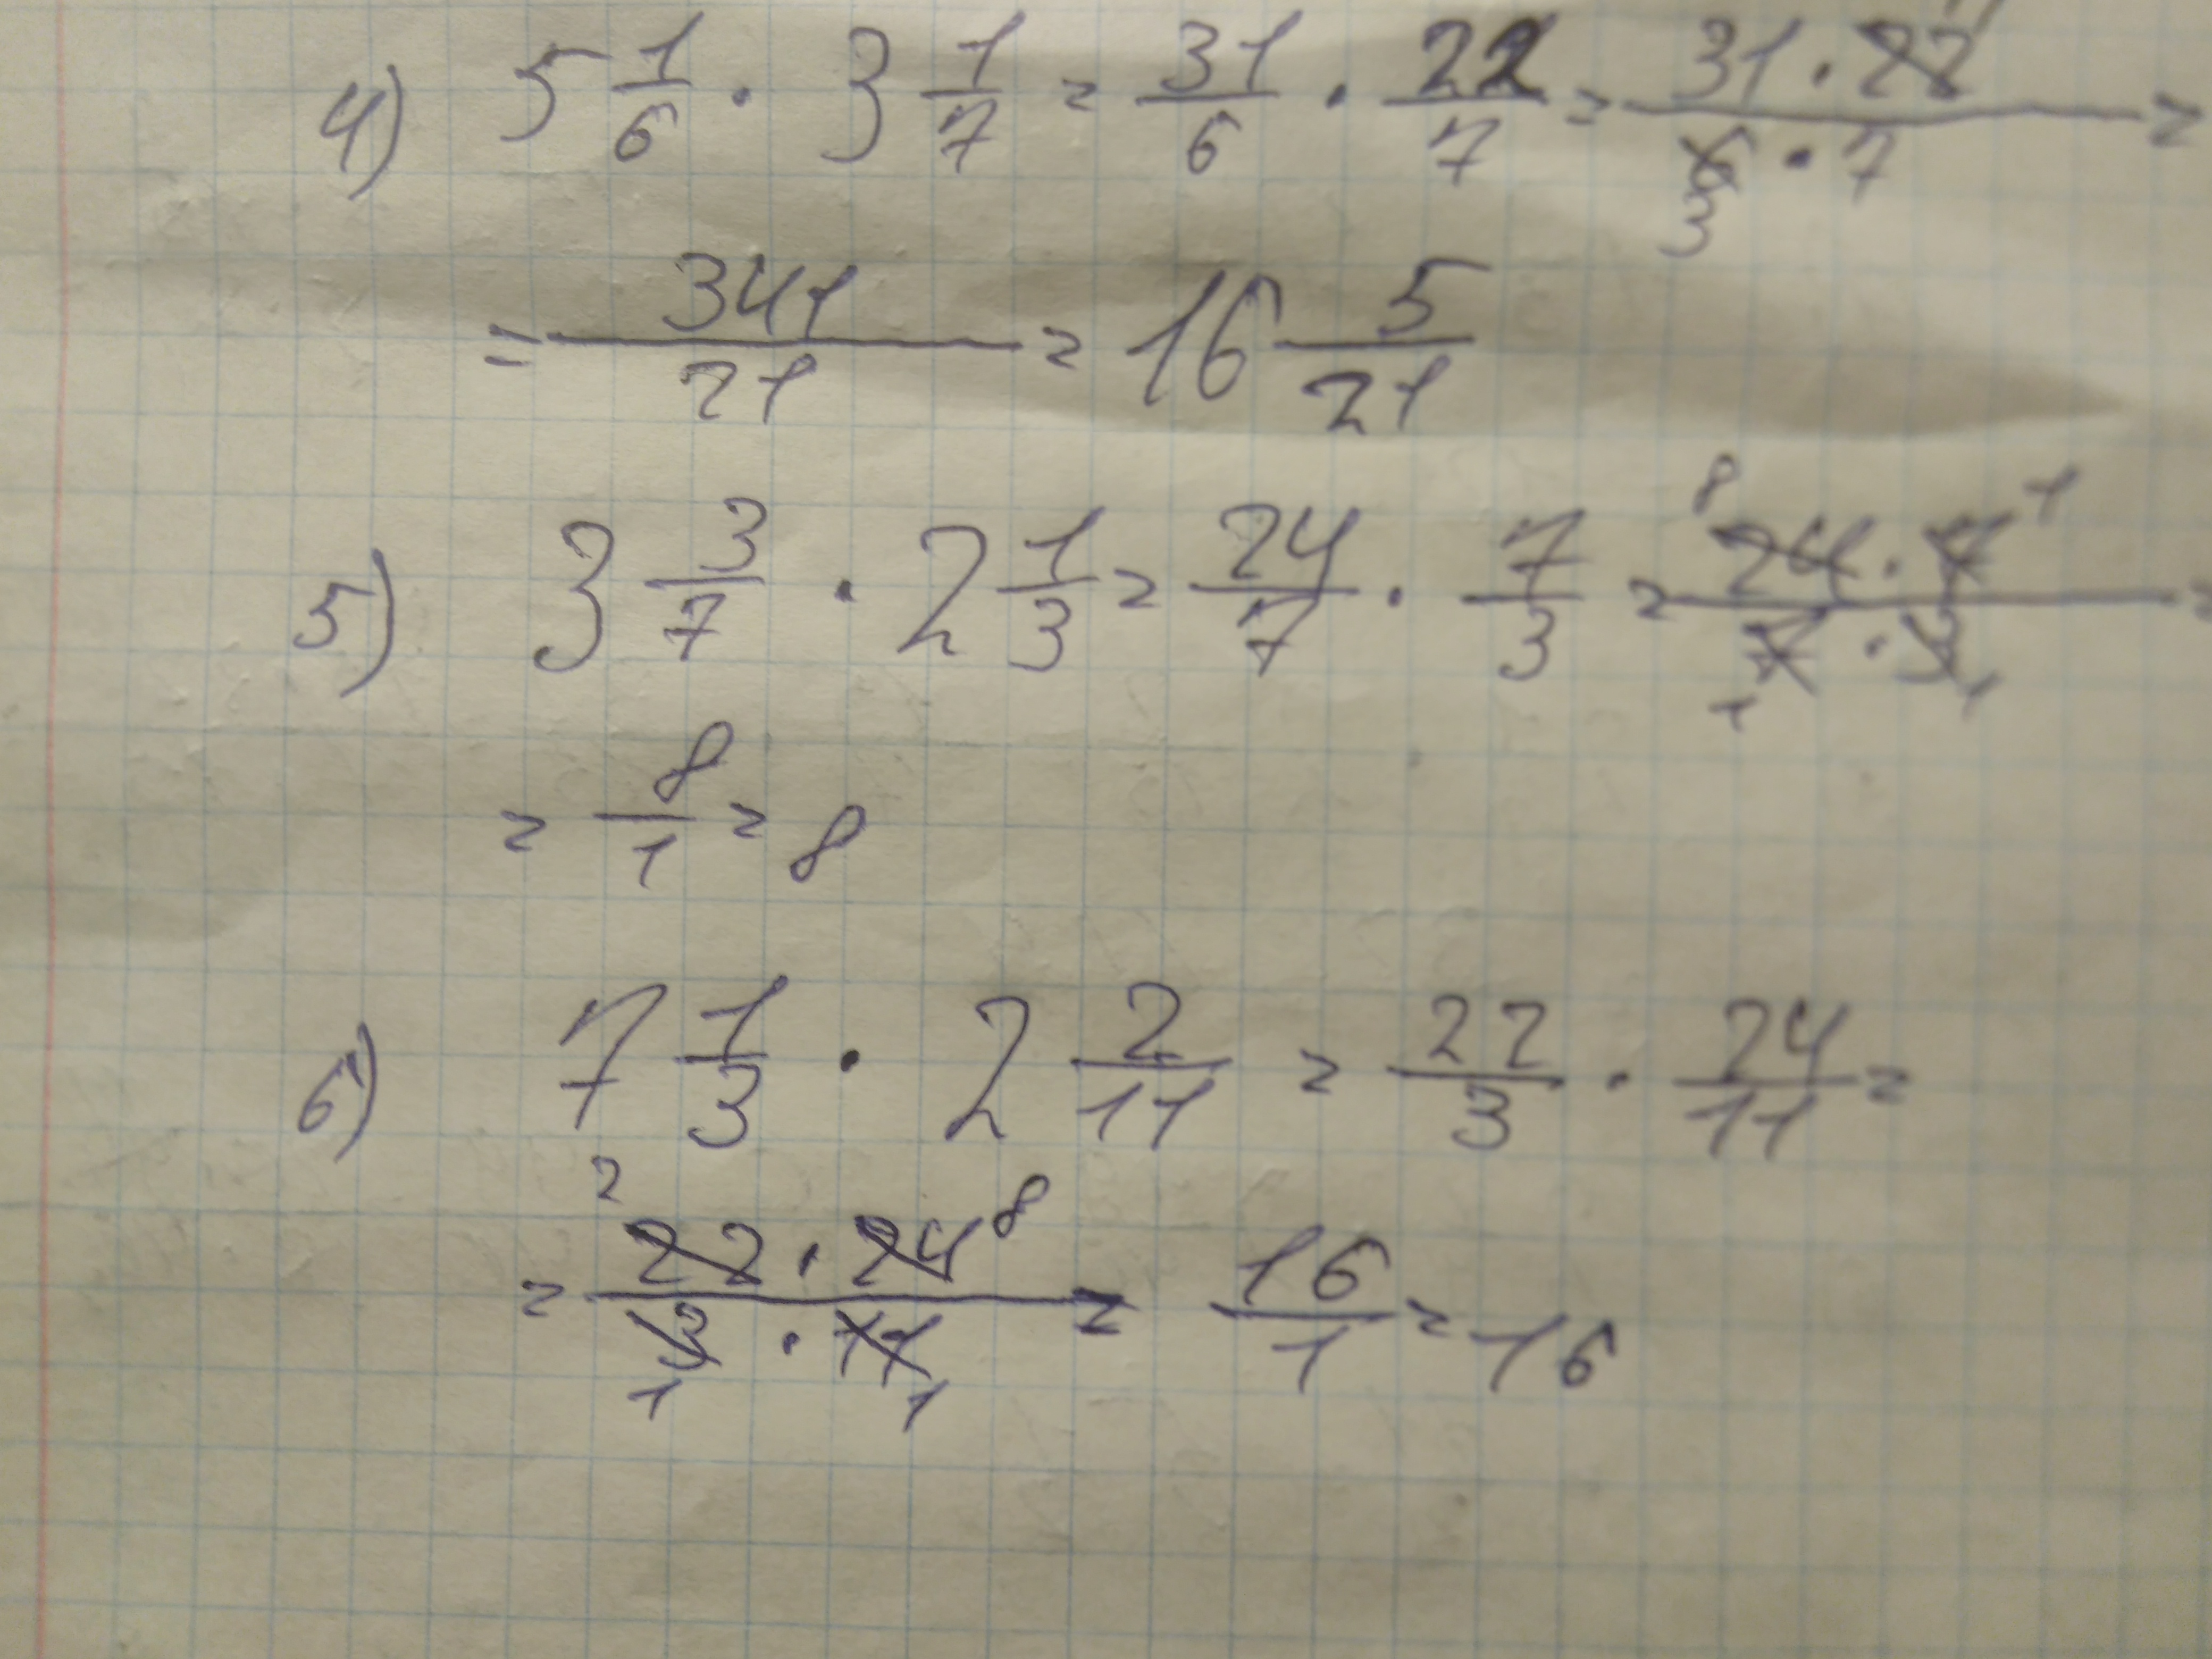 4) 5 1/6 · 3 1/7 = 31/6 · 22/7 = 31 · 22 / 6 · 7 =
3
= 341/21 = 16 5/21
8 1
5) 3 3/7 · 2 1/3 = 24/7 · 7/3 = 24 · 7 / 7 · 3 =
1 1
= 8/1 = 8
6) 7 1/3 · 2 2/11 = 22/3 · 24/11 =
2 8
= 22 · 24 / 3 · 11 = 16/1 = 16
1 1